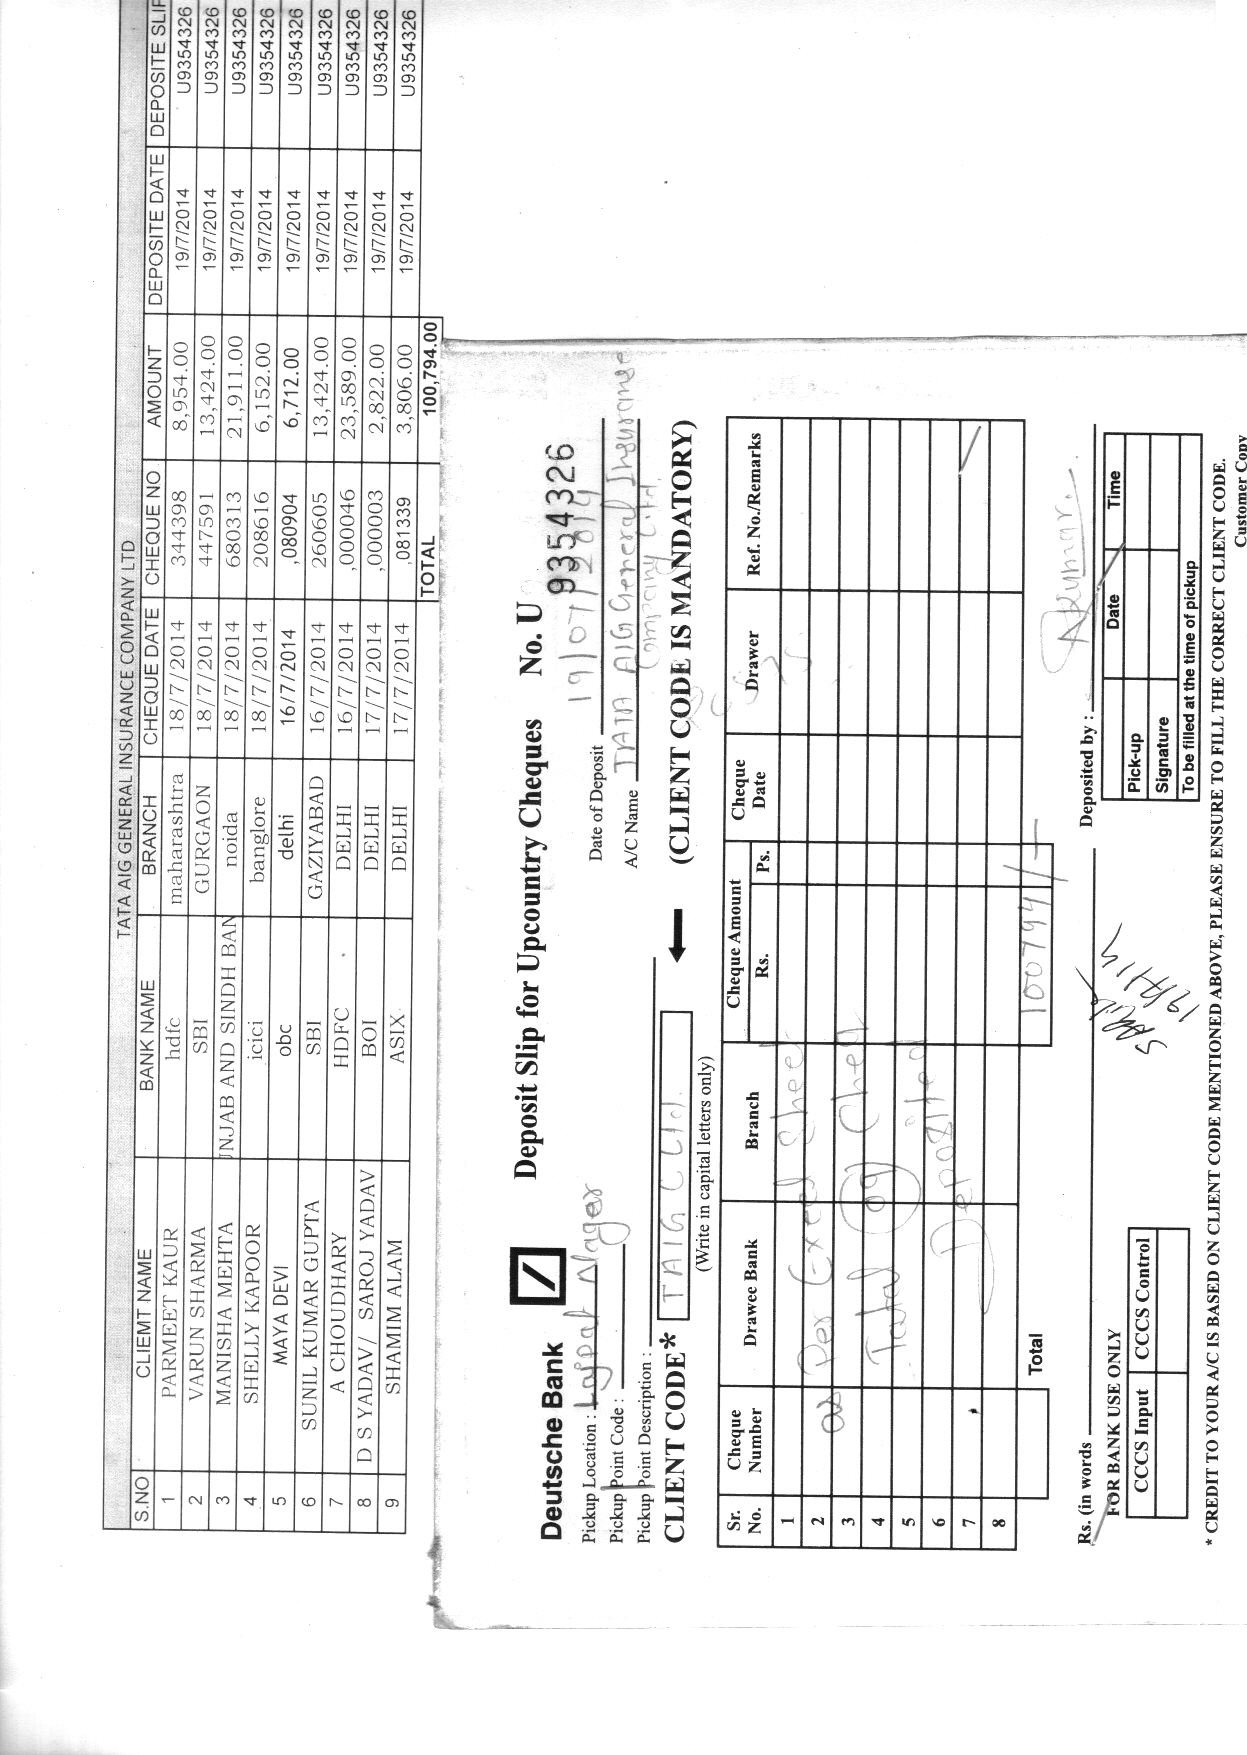 TATA AIG GENERAL INSURANCE COMPANY LTD
S.NO CLIEMT NAME BANK NAME BRANCH CHEQUE DATE CHEQUE NO. AMOUNT DEPOSITE DATE DEPOSITE SLIP
1 PARMEET KAUR hdfc maharashtra 18/7/2014 344398 8,954.00 19/7/2014 U9354326
2 VARUN SHARMA SBI GURGAON 18/7/2014 447591 13,424.00 19/7/2014 U9354326
3 MANISHA MEHTA UNJAB AND SINDH BAN noida 18/7/2014 680313 21,911.00 19/7/2014 U9354326
4 SHELLY KAPOOR icici banglore 18/7/2014 208616 6,152.00 19/7/2014 U9354326
5 MAYA DEVI obc delhi 16/7/2014 ,080904 6,712.00 19/7/2014 U9354326
6 SUNIL KUMAR GUPTA SBI GAZIYABAD 16/7/2014 260605 13,424.00 19/7/2014 U9354326
7 A CHOUDHARY HDFC DELHI 16/7/2014 ,000046 23,589.00 19/7/2014 U9354326
8 D S YADAV/ SAROJ YADAV BOI DELHI 17/7/2014 ,000003 2,822.00 19/7/2014 U9354326
9 SHAMIM ALAM ASIX DELHI 17/7/2014 ,081339 3,806.00 19/7/2014 U9354326
TOTAL 100,794.00
Deutsche Bank Deposit Slip for Upcountry Cheques No. U 9354326
Pickup Location : Lajpat Nager Date of Deposit 19/07/2014
Pickup Point Code : A/C Name TATA AIG General Insurance
Company Ltd.
Pickup Point Description :
CLIENT CODE* TAIG C Ltd. (CLIENT CODE IS MANDATORY)
(Write in capital letters only)
Sr. No. Cheque Number Drawee Bank Branch Cheque Amount Rs. Ps. Cheque Date Drawer Ref. No./Remarks
1
2 as Per Excel Sheet
3
4 Total 09 Chek
5
6 Deposited
7
8
Total 100794/-
Rs. (in words Deposited by : AKumar.
19/7/14
FOR BANK USE ONLY
CCCS Input CCCS Control
Date Time
Pick-up
Signature
To be filled at the time of pickup
* CREDIT TO YOUR A/C IS BASED ON CLIENT CODE MENTIONED ABOVE, PLEASE ENSURE TO FILL THE CORRECT CLIENT CODE.
Customer Copy